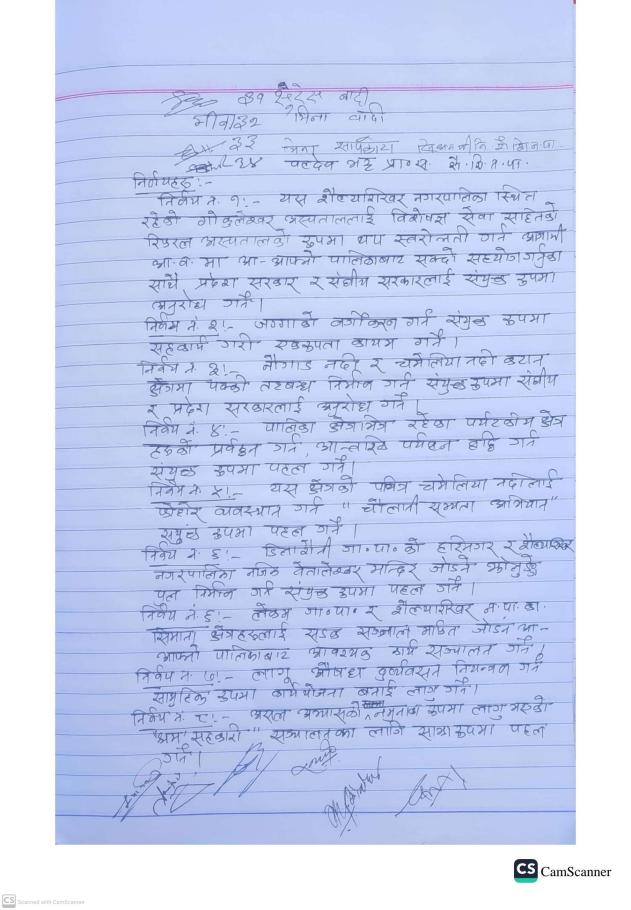 ३१ सुरेस बादी
३२ मिना बादी
३३
३४ पहदेव भट्ट प्रा०स. शै.शि.न.पा.
निर्णयहरु :-
निर्णय नं. १:- यस शैल्यशिखर नगरपालिका स्थित
रहेको गोकुलेश्वर अस्पताललाई विशेषज्ञ सेवा सहितको
रिफरल अस्पतालको रुपमा थप स्तरोन्नती गर्न आगामी
आ.व. मा आ-आफ्नो पालिकाबाट सक्दो सहयोग गर्नुका
साथै प्रदेश सरकार र संघीय सरकारलाई संयुक्त रुपमा
अनुरोध गर्ने।
निर्णय नं. २:- जग्गाको वर्गीकरण गर्न संयुक्त रुपमा
सहकार्य गरी एकरुपता कायम गर्ने।
निर्णय नं. ३:- नौगाड नदी र चमेलिया नदी कटान
क्षेत्रमा पक्की तटबन्ध निर्माण गर्न संयुक्त रुपमा संघीय
र प्रदेश सरकारलाई अनुरोध गर्ने।
निर्णय नं. ४:- पालिका क्षेत्रभित्र रहेका पर्यटकीय क्षेत्र
हरुको प्रर्वद्धन गर्न, आन्तरिक पर्यटन वृद्धि गर्न
संयुक्त रुपमा पहल गर्ने।
निर्णय नं. ५:- यस क्षेत्रको पवित्र चमेलिया नदीलाई
फोहोर व्यवस्थापन गर्न " चौलानी सभ्यता अभियान"
संयुक्त रुपमा पहल गर्ने।
निर्णय नं. ६:- डिलाशैनी गा.पा. को हरिनगर र शैल्यशिखर
नगरपालिका नजिक वेतालेश्वर मन्दिर जोड्ने झोलुङ्गे
पुल निर्माण गर्न संयुक्त रुपमा पहल गर्ने।
निर्णय नं. ६:- लेकम गा.पा. र शैल्यशिखर न.पा. का
सिमाना क्षेत्रहरुलाई सडक सञ्जाल मार्फत जोड्न आ-
आफ्नो पालिकाबाट आवश्यक कार्य सञ्चालन गर्ने।
निर्णय नं. ७:- लागू औषध दुर्व्यवसन नियन्त्रण गर्न
सामूहिक रुपमा कार्ययोजना बनाई लागू गर्ने।
निर्णय नं. ८:- असल अभ्यासको नमूनाको रुपमा लागू भएको
"श्रम सहकारी" सञ्चालनका लागि साझा रुपमा पहल
गर्ने।
CS CamScanner
CS Scanned with CamScanner